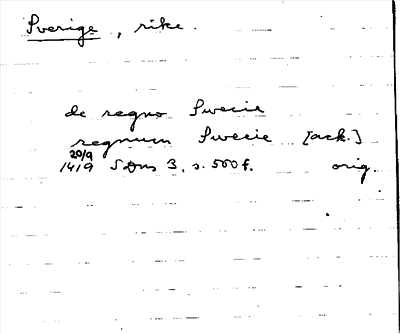 Sverige, rike.
de regno Swecie
regnum Swecie [ack.]
20/9
1419 SDns 3, s. 500 f. orig.